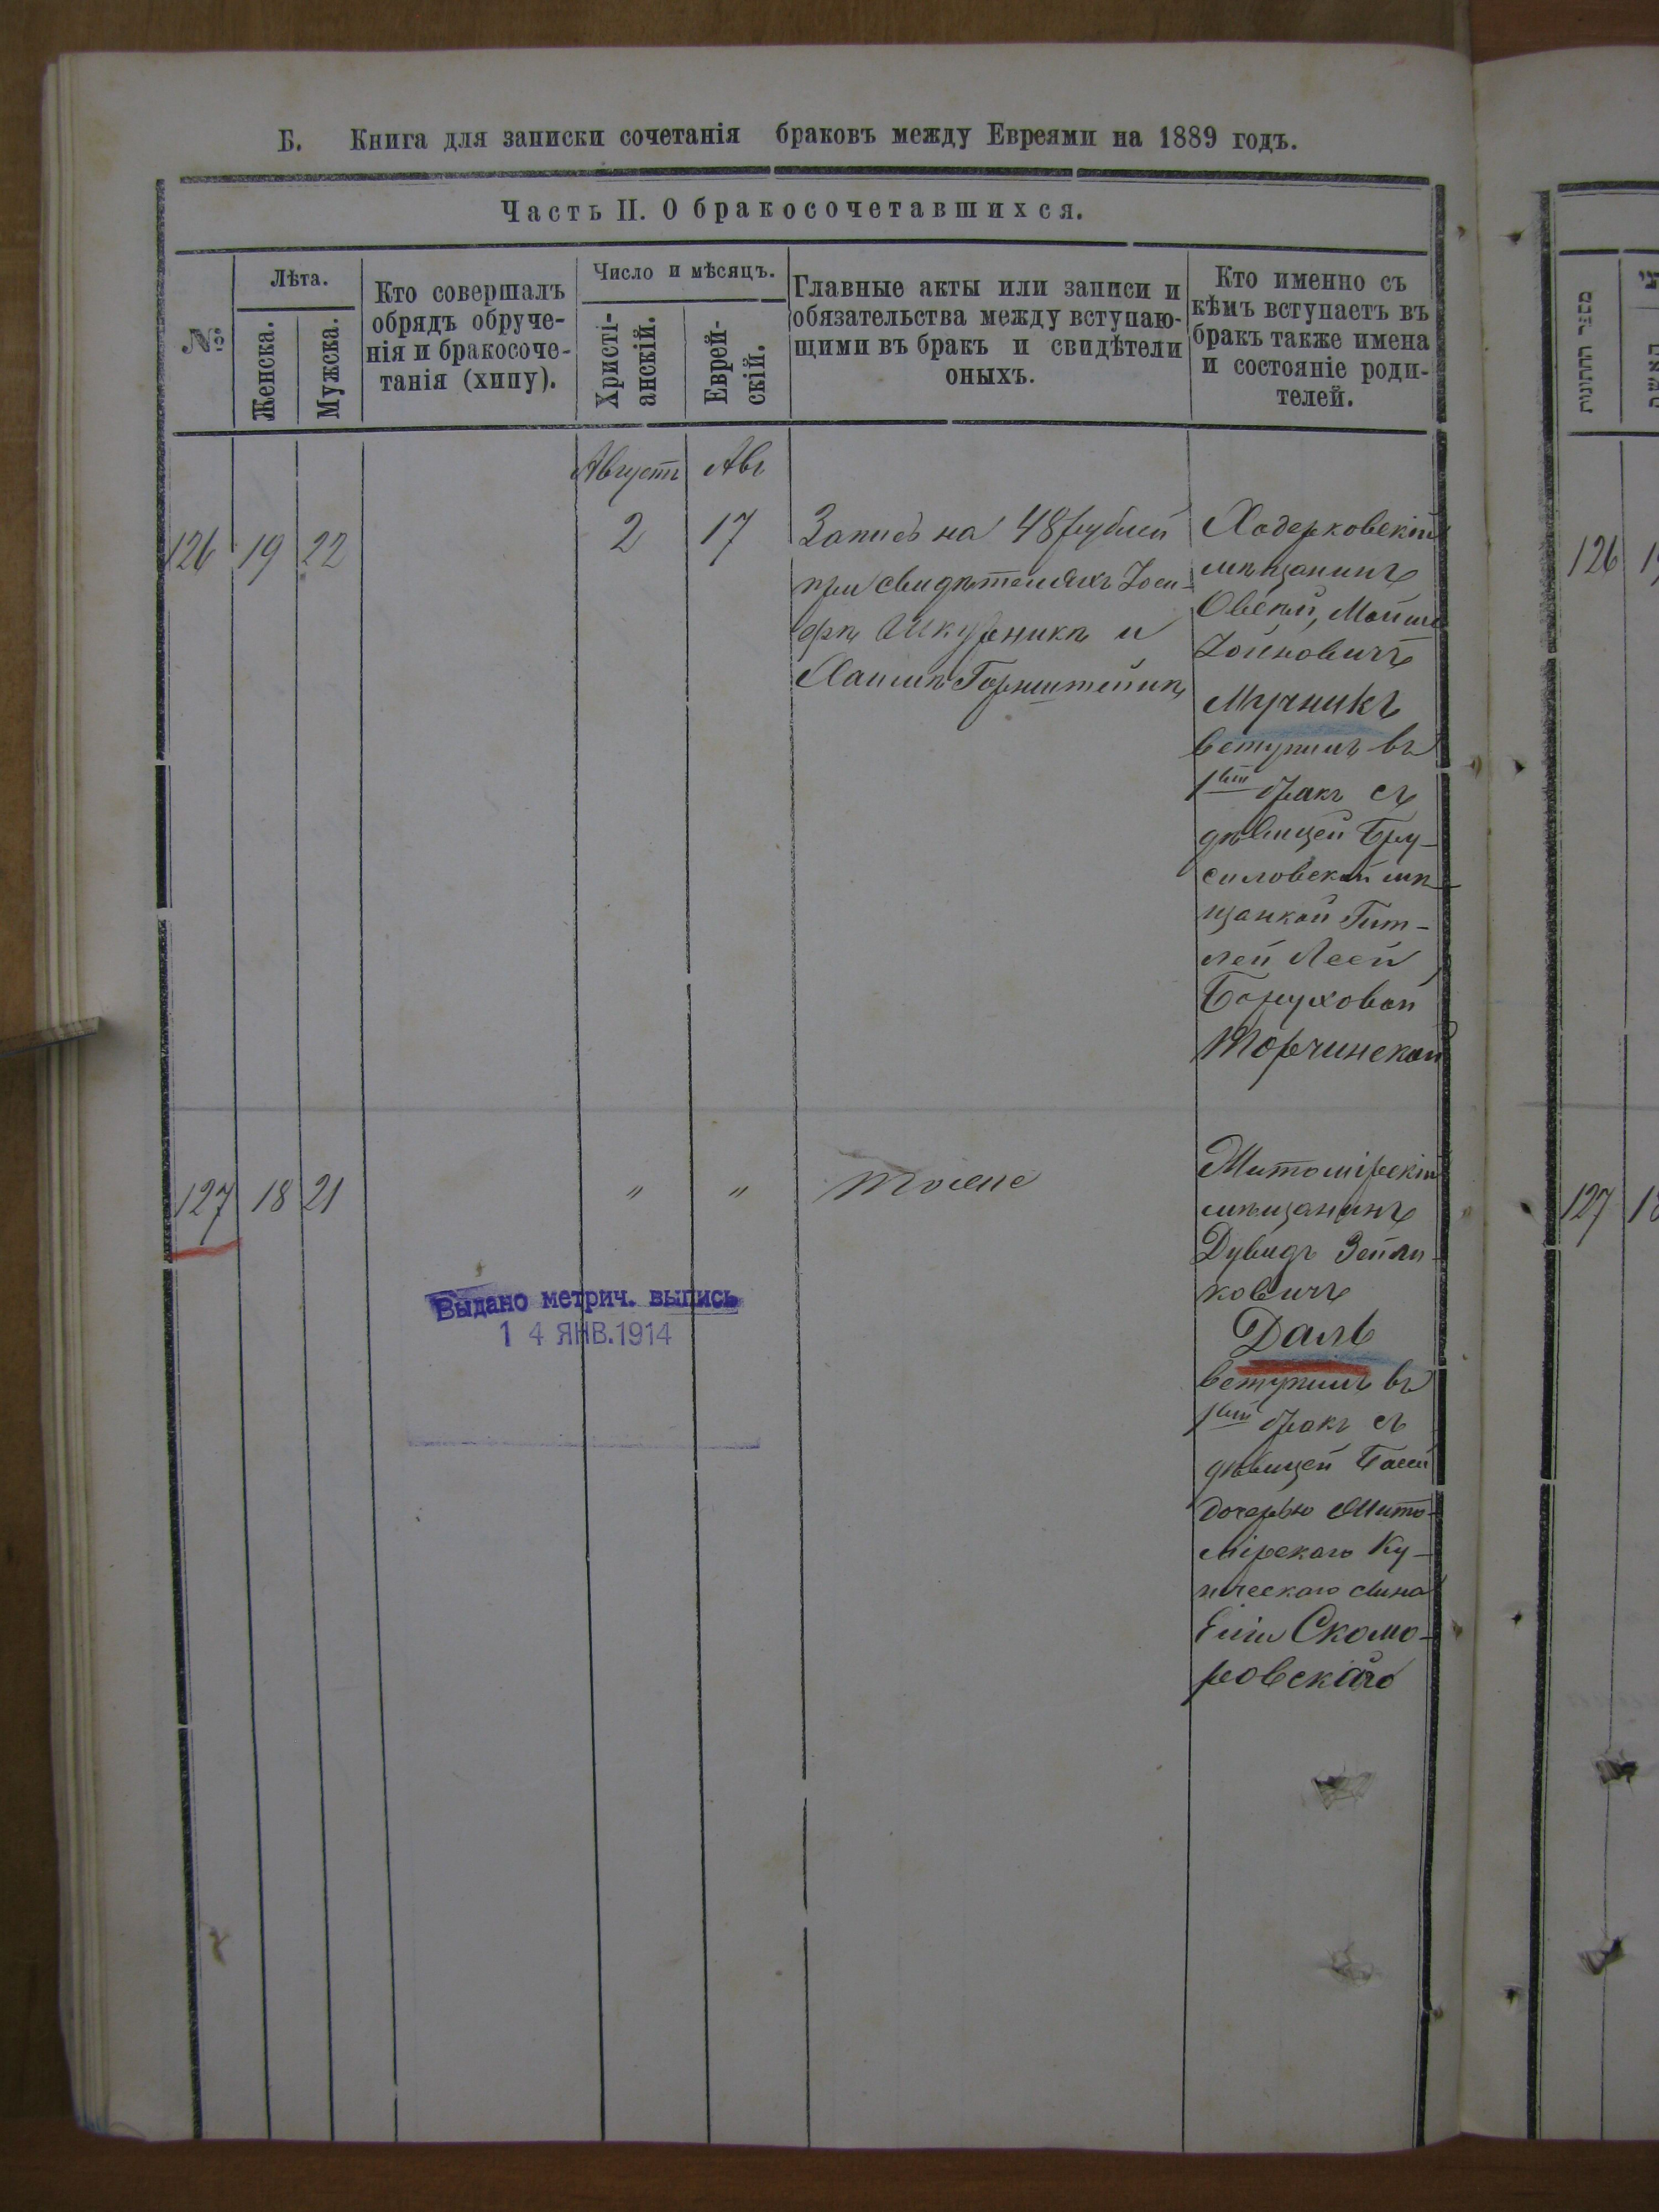 Б. Книга для записки сочетанія браковъ между Евреями на 1889 годъ.
Часть II. О бракосочетавшихся.
№
Лѣта.
Женска.
Мужска.
Кто совершалъ
обрядъ обруче-
нія и бракосоче-
танія (хипу).
Число и мѣсяцъ.
Христі-
анскій.
Еврей-
скій.
Главные акты или записи и
обязательства между вступаю-
щими въ бракъ и свидѣтели
оныхъ.
Кто именно съ
кѣмъ вступаетъ въ
бракъ также имена
и состояніе роди-
телей.
Августъ Авъ
126 19 22 2 17
Запись на 48 рублей
при свидѣтеляхъ Іоси-
фѣ Шкурникѣ и
Хаимѣ Горнштейнѣ
Ходорковскій
мѣщанинъ
Овсѣй, Мойше
Іойновичъ
Мучникъ
вступилъ въ
1вый бракъ съ
дѣвицей Бру-
силовской мѣ-
щанкой Гит-
лей Леей
Боруховой
Торчинской
127 18 21 " " тоже
Житомірскій
мѣщанинъ
Дувидъ Зейли-
ковичъ
Даль
вступилъ въ
1вый бракъ съ
дѣвицей Басей
дочерью Жито-
мірскаго Ку-
пческаго сына
Скомо-
ровскаго
Выдано метрич. выпись
14 ЯНВ. 1914
מספר החתונות
126
127